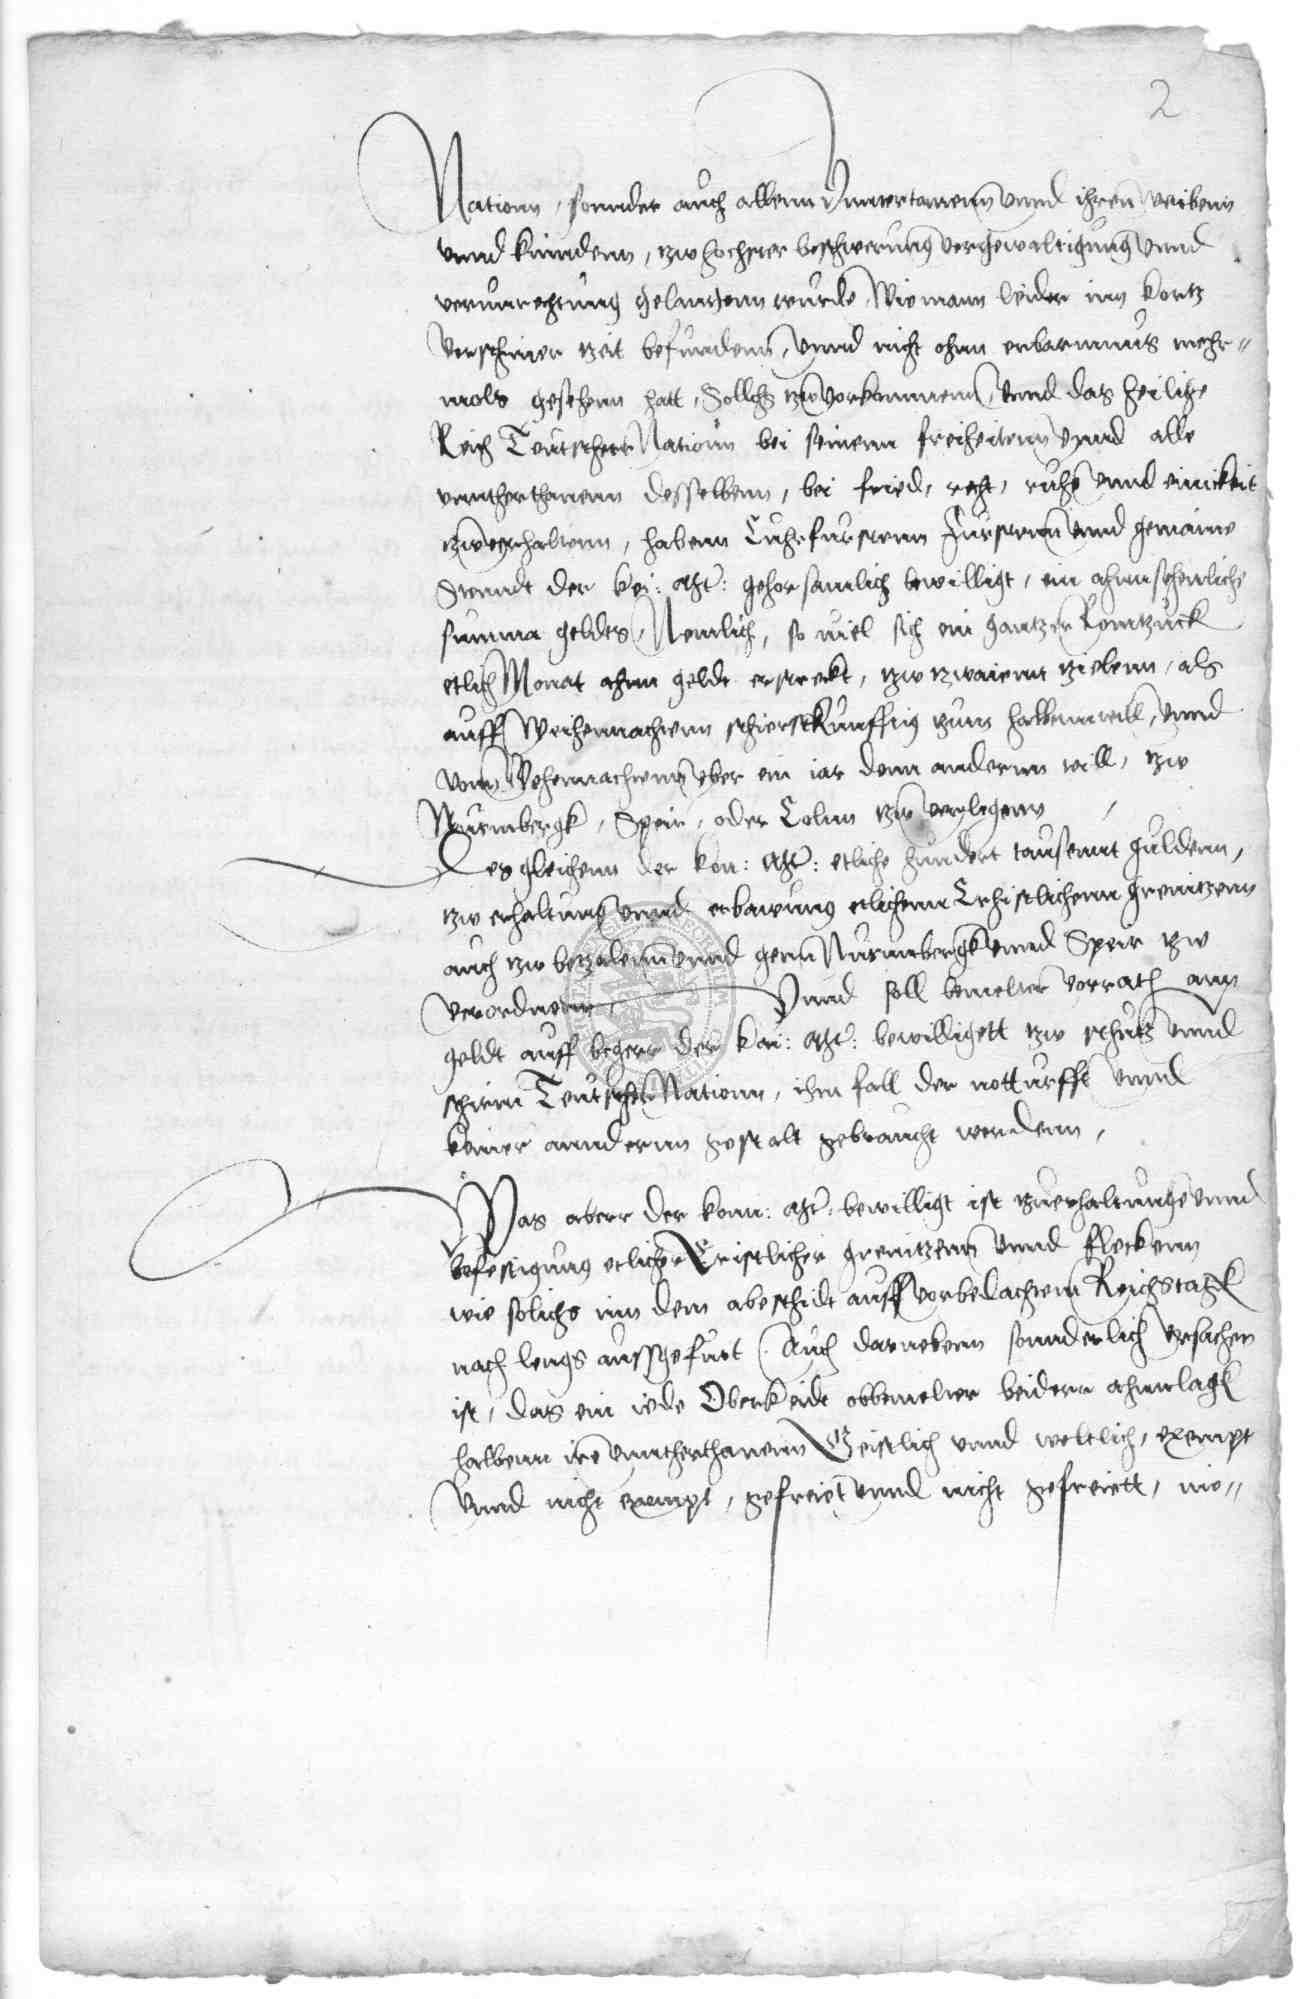 2
Nationn, sonnder auch allenn Unnertanenn unnd ihren weibenn
unnd kinndenn, tzw hochster beschwerung vergewaltigung unnd
verunrechtung gelanngenn wurde, Wie mann leider inn kortz
verschiner tzeit befundenn, unnd nicht ohnn erbarmnus mehr=
mols gesehenn hatt, Sollchs tzw vorkommenn, unnd das heilige
Reich Teutscherr Nationn bei seinenn freiheitenn unnd alle
unntherthanenn desselbenn, bei fried, recht, ruhe unnd einickeit
tzw erhaltenn, habenn Cuhrfurstenn Furstenn unnd gemaine
Stenndt der kei: Mt: gehorsamlich bewilligt, ein ahnnsehenliche
summa geldes, Nemlich, so viel sich ein gantzer Romtzuck
etlich Monat ahnn geldt erstreckt, tzw tzwaienn tzielenn, als
auff Weihennachtenn schierstkunfftig tzum halbenn teill, unnd
vonn Wehennachtenn uber ein iar denn anderenn teill, tzw
Nurmbergk, Speir, oder Colnn tzw erligenn
Desgleichenn der kon: Mt: etliche hundert tausennt guldenn,
tzw erhaltung unnd erbawung etlichenn Christlichenn grenitzenn
auch tzw betzalenn unnd genn Nurmbergk unnd Speir tzw
verordnenn, Unnd soll bemelter vorrath ann
geldt auff begerr der kai: Mt: bewilligett tzw schutz unnd
schirm Teutscher Nationn, ihm fall der notturfft unnd
keiner annderenn gestalt gebraucht werdenn,
Was aberr der konn: Mt: bewilligt ist tzu erhaltunge unnd
befestigung etlicher Cristlicher grenitzenn unnd fleckenn
wie solichs inn dem abeschidt auff vorbedachtem Reichstagk
nach lengs aussgefurt. Auch darnebenn sonnderlich versehen
ist, das ein iede Oberkeidt obbemelter beiderr ahnnlagk
halbenn ire unntherthanenn Geistlich unnd weltlich, exempt
Unnd nicht exempt, gefreiet unnd nicht gefreiett, nie=